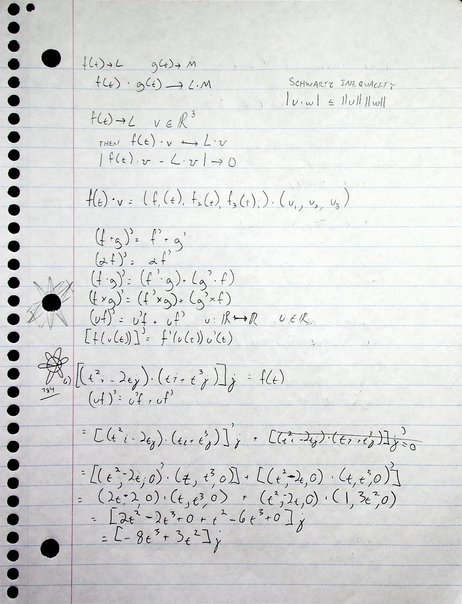 f(t)→L g(t)→M
f(t) · g(t) → L·M
SCHWARTZ INEQUALITY
|v·w| ≤ ||v|| ||w||
f(t)→L v ∈ ℝ³
THEN f(t)·v → L·v
|f(t)·v - L·v| → 0
f(t)·v = (f₁(t), f₂(t), f₃(t))·(v₁, v₂, v₃)
(f+g)' = f' + g'
(αf)' = αf'
(f·g)' = (f'·g) + (g'·f)
(f×g)' = (f'×g) + (g'×f)
(uf)' = u'f + uf' u: ℝ→ℝ
[f(u(t))]' = f'(u(t)) u'(t)
[(t²i - 2tj)·(ti + t³j)]j = f(t)
(uf)' = u'f + uf'
= [(t²i - 2tj)·(ti + t³j)]'j + [(t²i - 2tj)·(ti + t³j)]j' = 0
= [(t², -2t, 0)'·(t, t³, 0)] + [(t², -2t, 0)·(t, t³, 0)']
= (2t, -2, 0)·(t, t³, 0) + (t², -2t, 0)·(1, 3t², 0)
= [2t² - 2t³ + 0 + t² - 6t³ + 0]j
= [-8t³ + 3t²]j